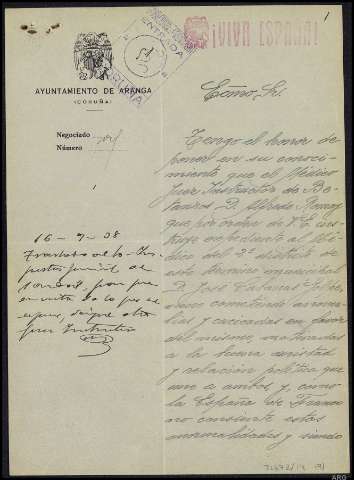 1
¡VIVA ESPAÑA!
ENTRADA
AYUNTAMIENTO DE ARANGA
(CORUÑA)
Negociado
Número
Excmo. Sr.
Tengo el honor de
poner en su conoci-
miento que el Médico
Juez Instructor de Be-
tanzos D. Alfredo
que por orden de V. E. ins-
truye expediente al Mé-
dico del 2º distrito de
este término municipal
D. José
viene cometiendo anoma-
lías y en favor
del mismo, motivadas
a la buena amistad
y relación política que
une a ambos, y como
la España de Franco
no consiente estas
anormalidades y siendo
16-9-38
Trasládese al Ins-
pector de
Sanidad, para que
en vista de lo que se
expone, designe otro
Juez Instructor
ARG